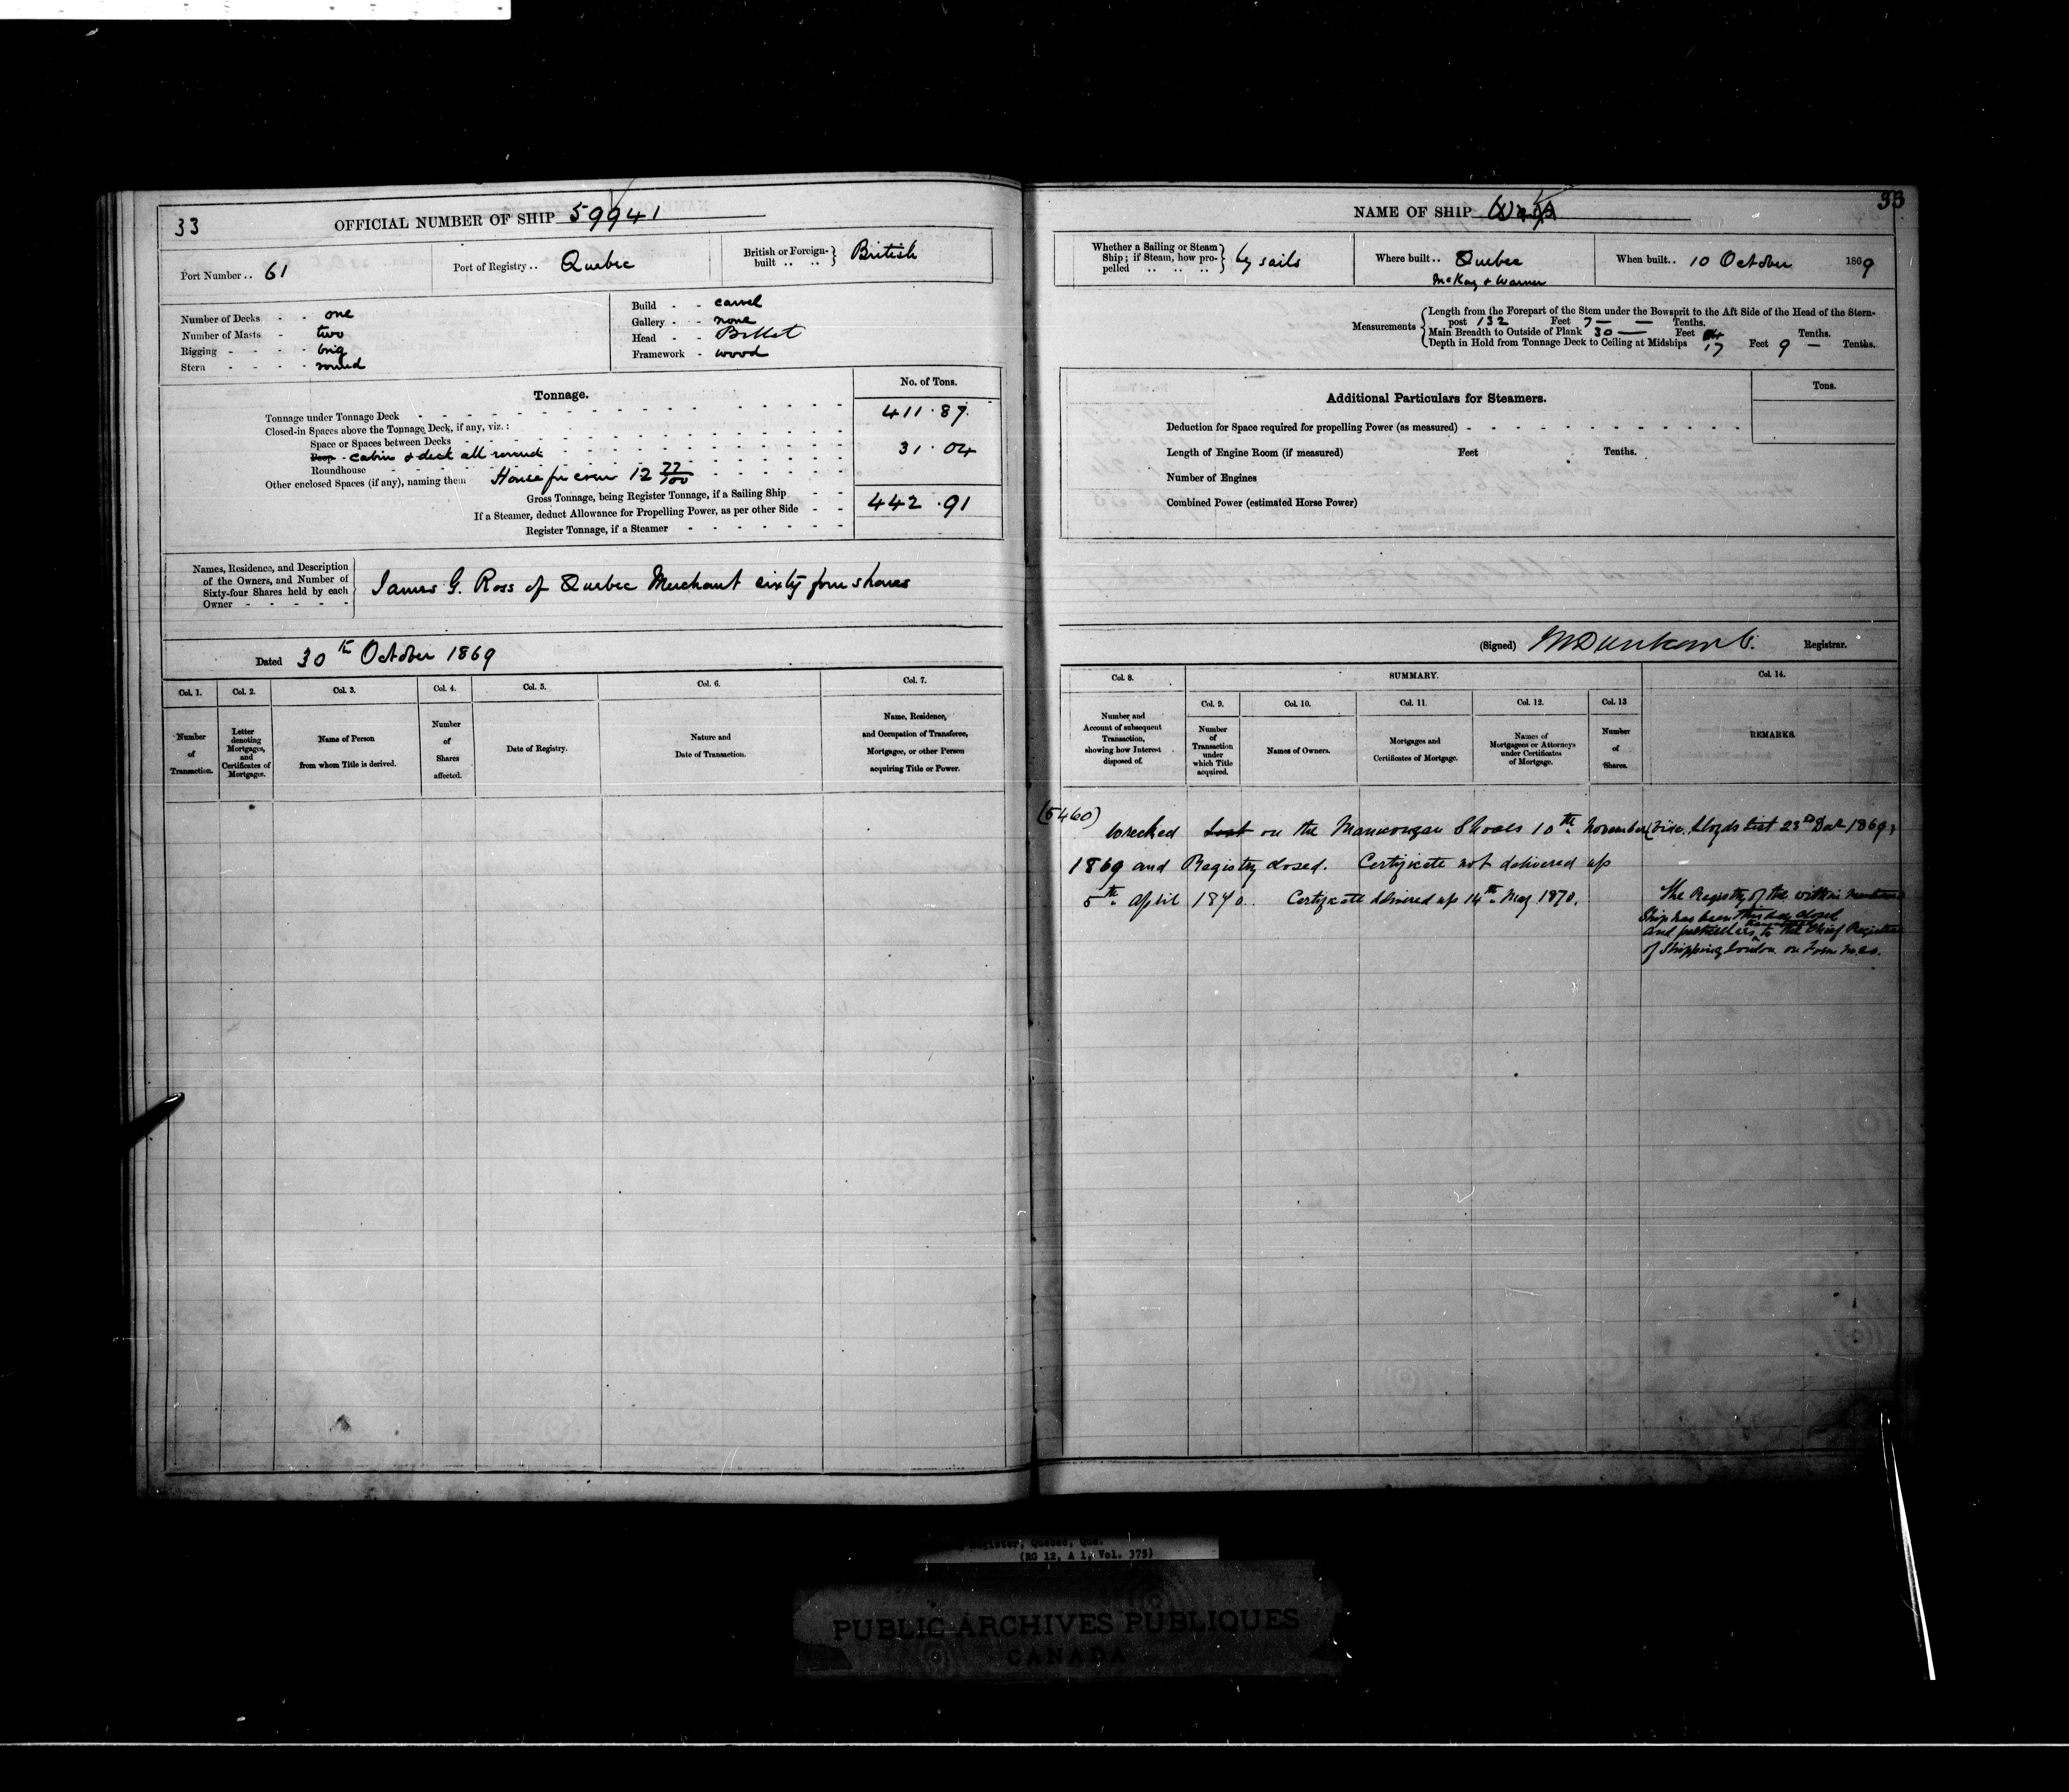 33
OFFICIAL NUMBER OF SHIP 59941
Port Number .. 61
Port of Registry .. Quebec
British or Foreign-built .. .. British
Number of Decks - - one
Number of Masts - two
Rigging - - - - brig
Stern - - - - round
Build - - carvel
Gallery - - none
Head - - Billet
Framework - wood
Tonnage.
No. of Tons.
Tonnage under Tonnage Deck 411.87
Closed-in Spaces above the Tonnage Deck, if any, viz.:
Space or Spaces between Decks
Poop cabin & deck all round 31.04
Roundhouse
Other enclosed Spaces (if any), naming them House for crew 12 77/100
Gross Tonnage, being Register Tonnage, if a Sailing Ship 442.91
If a Steamer, deduct Allowance for Propelling Power, as per other Side
Register Tonnage, if a Steamer
Names, Residence, and Description
of the Owners, and Number of
Sixty-four Shares held by each
Owner
James G. Ross of Quebec Merchant sixty four shares
Dated 30th October 1869
Col. 1.
Col. 2.
Col. 3.
Col. 4.
Col. 5.
Col. 6.
Col. 7.
Number of Transaction.
Letter denoting Mortgages, and Certificates of Mortgages.
Name of Person from whom Title is derived.
Number of Shares affected.
Date of Registry.
Nature and Date of Transaction.
Name, Residence, and Occupation of Transferee, Mortgagee, or other Person acquiring Title or Power.
33
NAME OF SHIP
Whether a Sailing or Steam Ship; if Steam, how propelled .. .. .. by sails
Where built .. Quebec
McKay & Warner
When built .. 10 October 1869
Measurements
Length from the Forepart of the Stem under the Bowsprit to the Aft Side of the Head of the Stern-
post 132 Feet 7 — — Tenths.
Main Breadth to Outside of Plank 30 — Feet Tenths.
Depth in Hold from Tonnage Deck to Ceiling at Midships 17 Feet 9 — Tenths.
Additional Particulars for Steamers.
Tons.
Deduction for Space required for propelling Power (as measured)
Length of Engine Room (if measured) Feet Tenths.
Number of Engines
Combined Power (estimated Horse Power)
(Signed) Registrar.
Col. 8.
SUMMARY.
Col. 14.
Col. 9.
Col. 10.
Col. 11.
Col. 12.
Col. 13
Number and Account of subsequent Transaction, showing how Interest disposed of.
Number of Transaction under which Title acquired.
Names of Owners.
Mortgages and Certificates of Mortgage.
Names of Mortgagees or Attorneys under Certificates of Mortgage.
Number of Shares.
REMARKS.
(5460)
Wrecked Lost on the Manicougan Shoals 10th November (Vide Lloyds List 23d Decr 1869)
1869 and Registry closed. Certificate not delivered up
5th April 1870. Certificate delivered up 14th May 1870.
The Registry of the within mentioned
Ship has been this day closed
and particulars to the Chief Registrar
of Shipping London on Form
Register, Quebec, Que.
(RG 12, A 1, Vol. 375)
PUBLIC ARCHIVES PUBLIQUES
CANADA